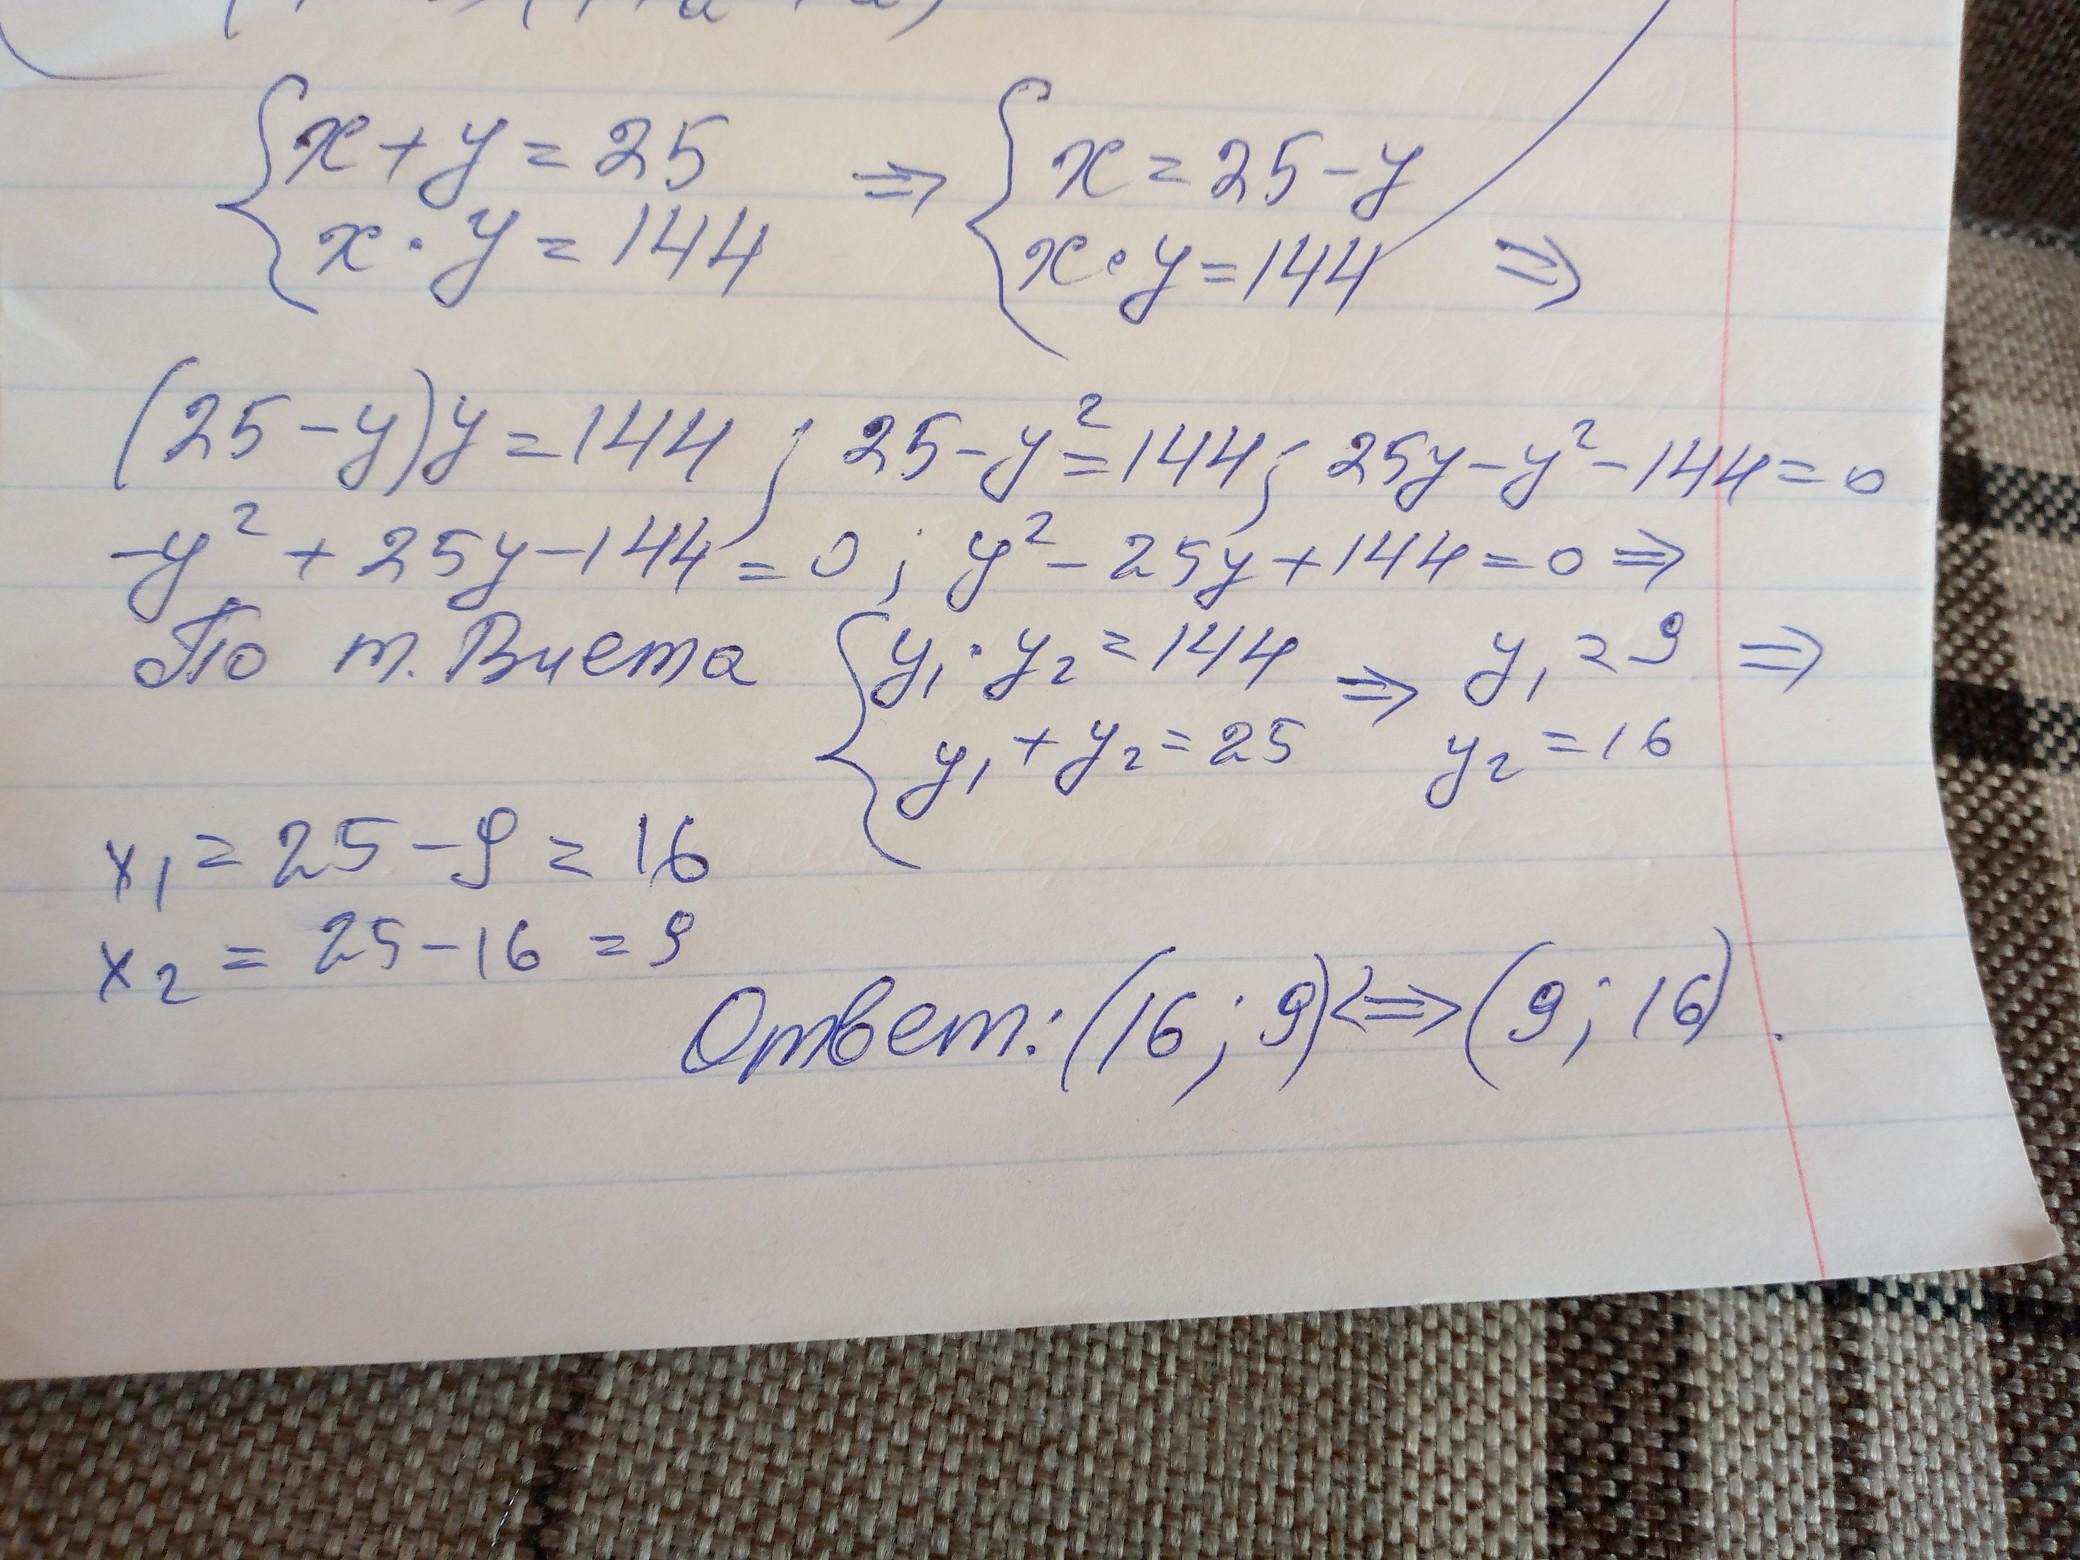 { x + y = 25 ⇒ { x = 25 - y
x · y = 144 x · y = 144 ⇒
(25 - y)y = 144 ; 25 - y² = 144 ; 25y - y² - 144 = 0
-y² + 25y - 144 = 0 ; y² - 25y + 144 = 0 ⇒
По т. Виета { y₁ · y₂ = 144 ⇒ y₁ = 9 ⇒
y₁ + y₂ = 25 y₂ = 16
x₁ = 25 - 9 = 16
x₂ = 25 - 16 = 9
Ответ: (16 ; 9) <=> (9 ; 16) .